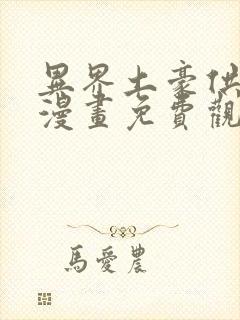 異界土豪供
漫畫免費觀
馬愛農